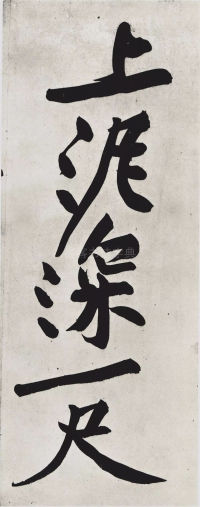 上泥深一尺